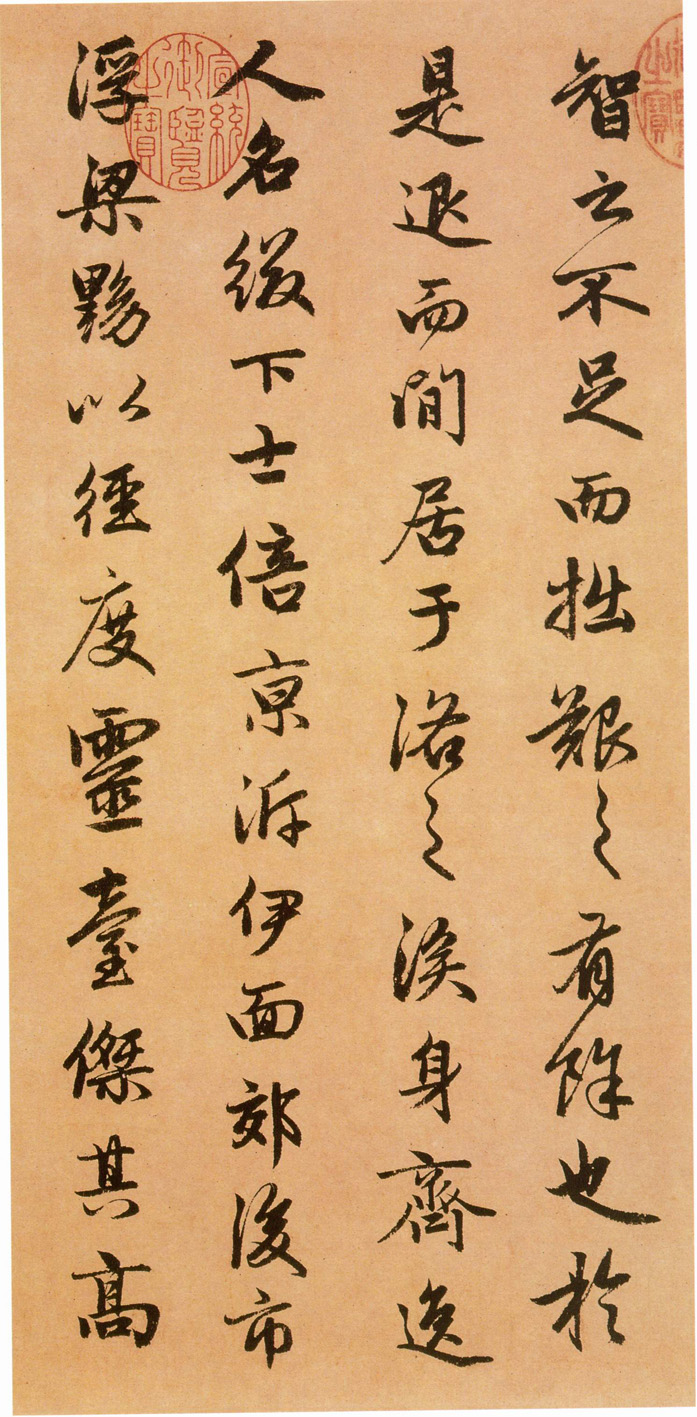 智之不足而拙艱之有餘也於
是退而閒居于洛之涘身齊逸
人名綴下士倍京泝伊面郊後市
浮梁黝以徑度靈臺傑其高
宣統御覽之寶
之寶